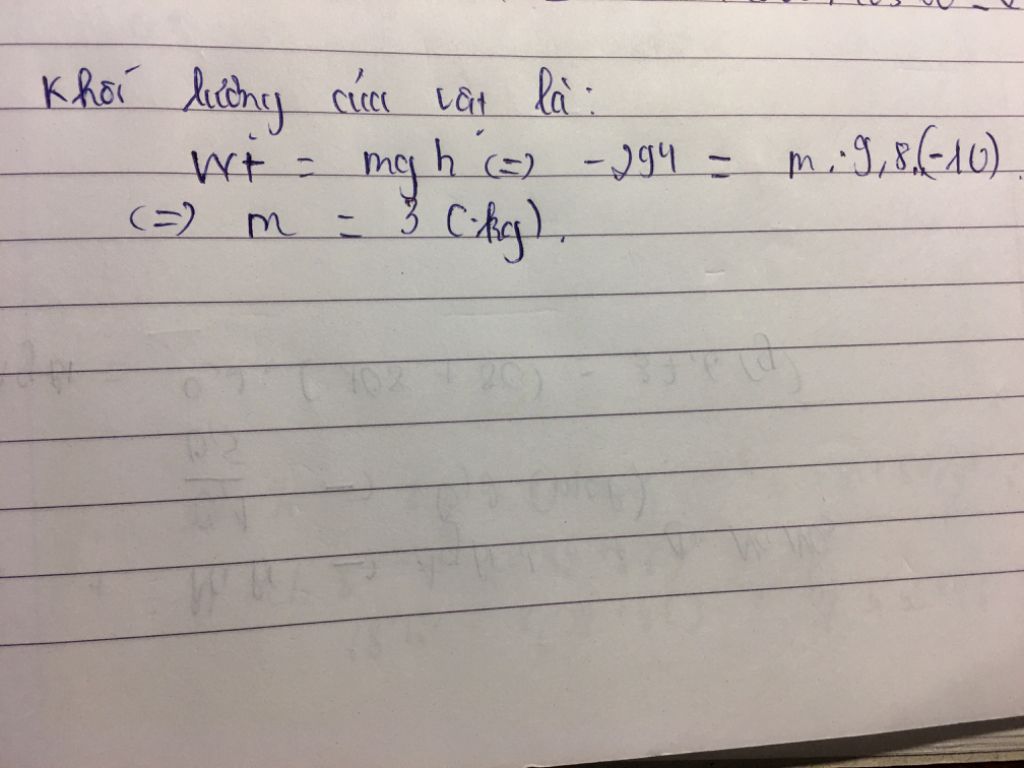 Khối lượng của vật là:
Wt = mgh <=> -294 = m.9,8.(-10).
<=> m = 3 (kg).